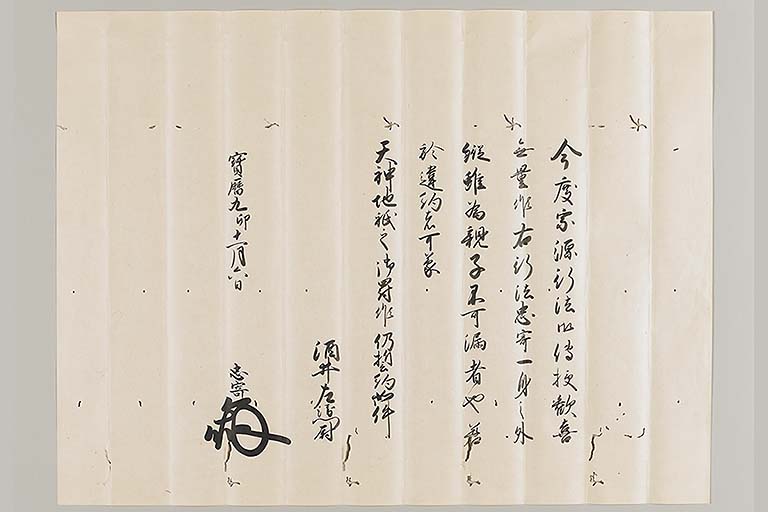 今度宗源行法御傳授歓喜
無量候右行法忠寄一身之外
縦雖為親子不可漏者也若
於違約者可蒙
天神地祇之御罸候仍誓約如件
酒井左衛門尉
寳暦九卯十一月六日
忠寄